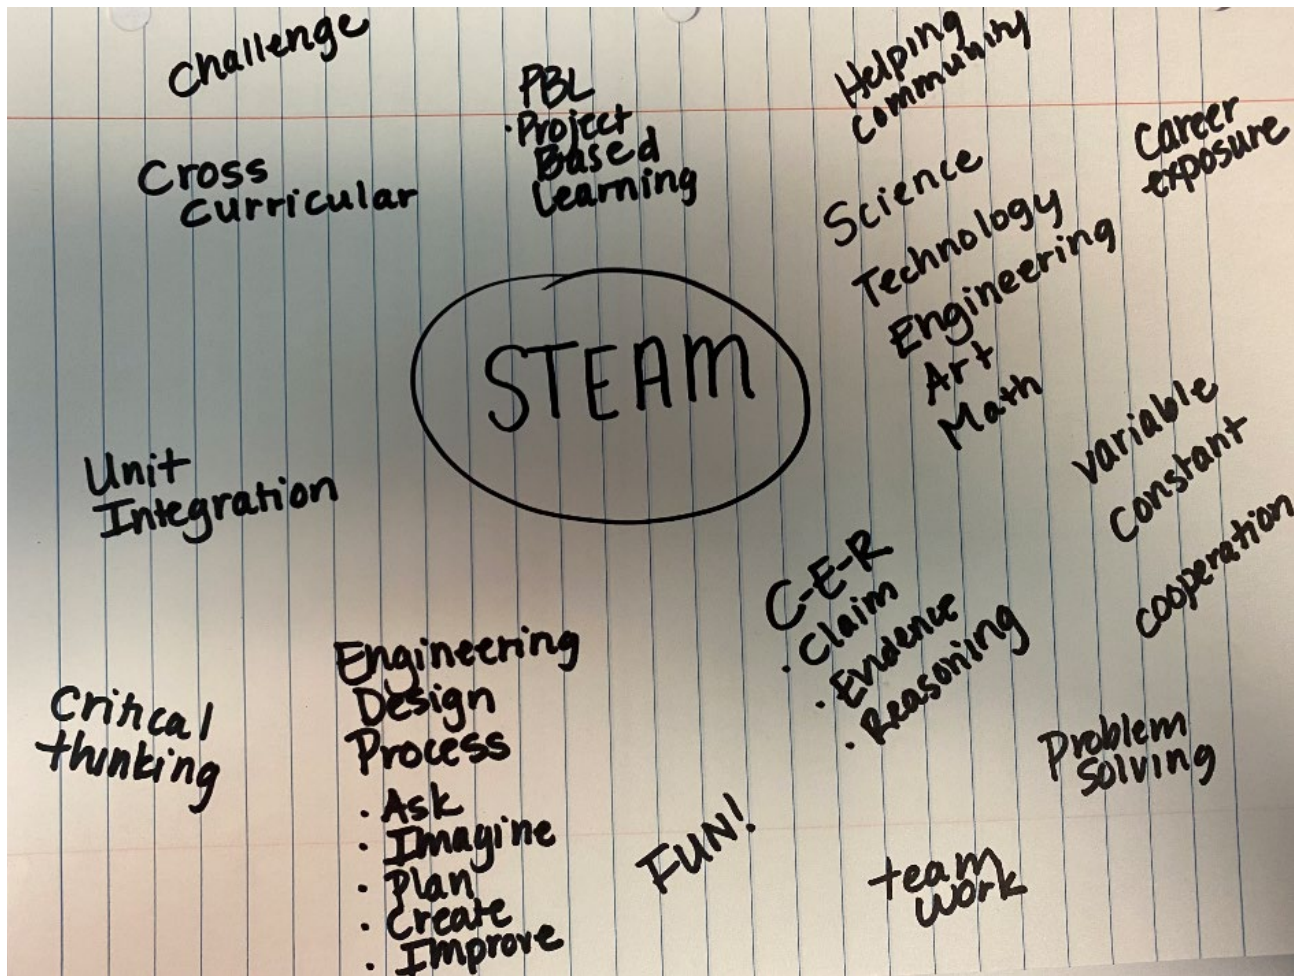 Challenge
Cross
curricular
PBL
· Project
Based
Learning
Helping
Community
Career
exposure
Science
Technology
Engineering
Art
Math
STEAM
Unit
Integration
variable
Constant
cooperation
C-E-R
· Claim
· Evidence
· Reasoning
Critical
thinking
Engineering
Design
Process
· Ask
· Imagine
· Plan
· Create
· Improve
FUN!
Problem
solving
team
work